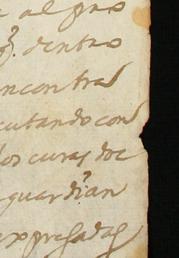 al pro
q.e dentro
encontral
cutando con
los curas doc
guardian
expresadas